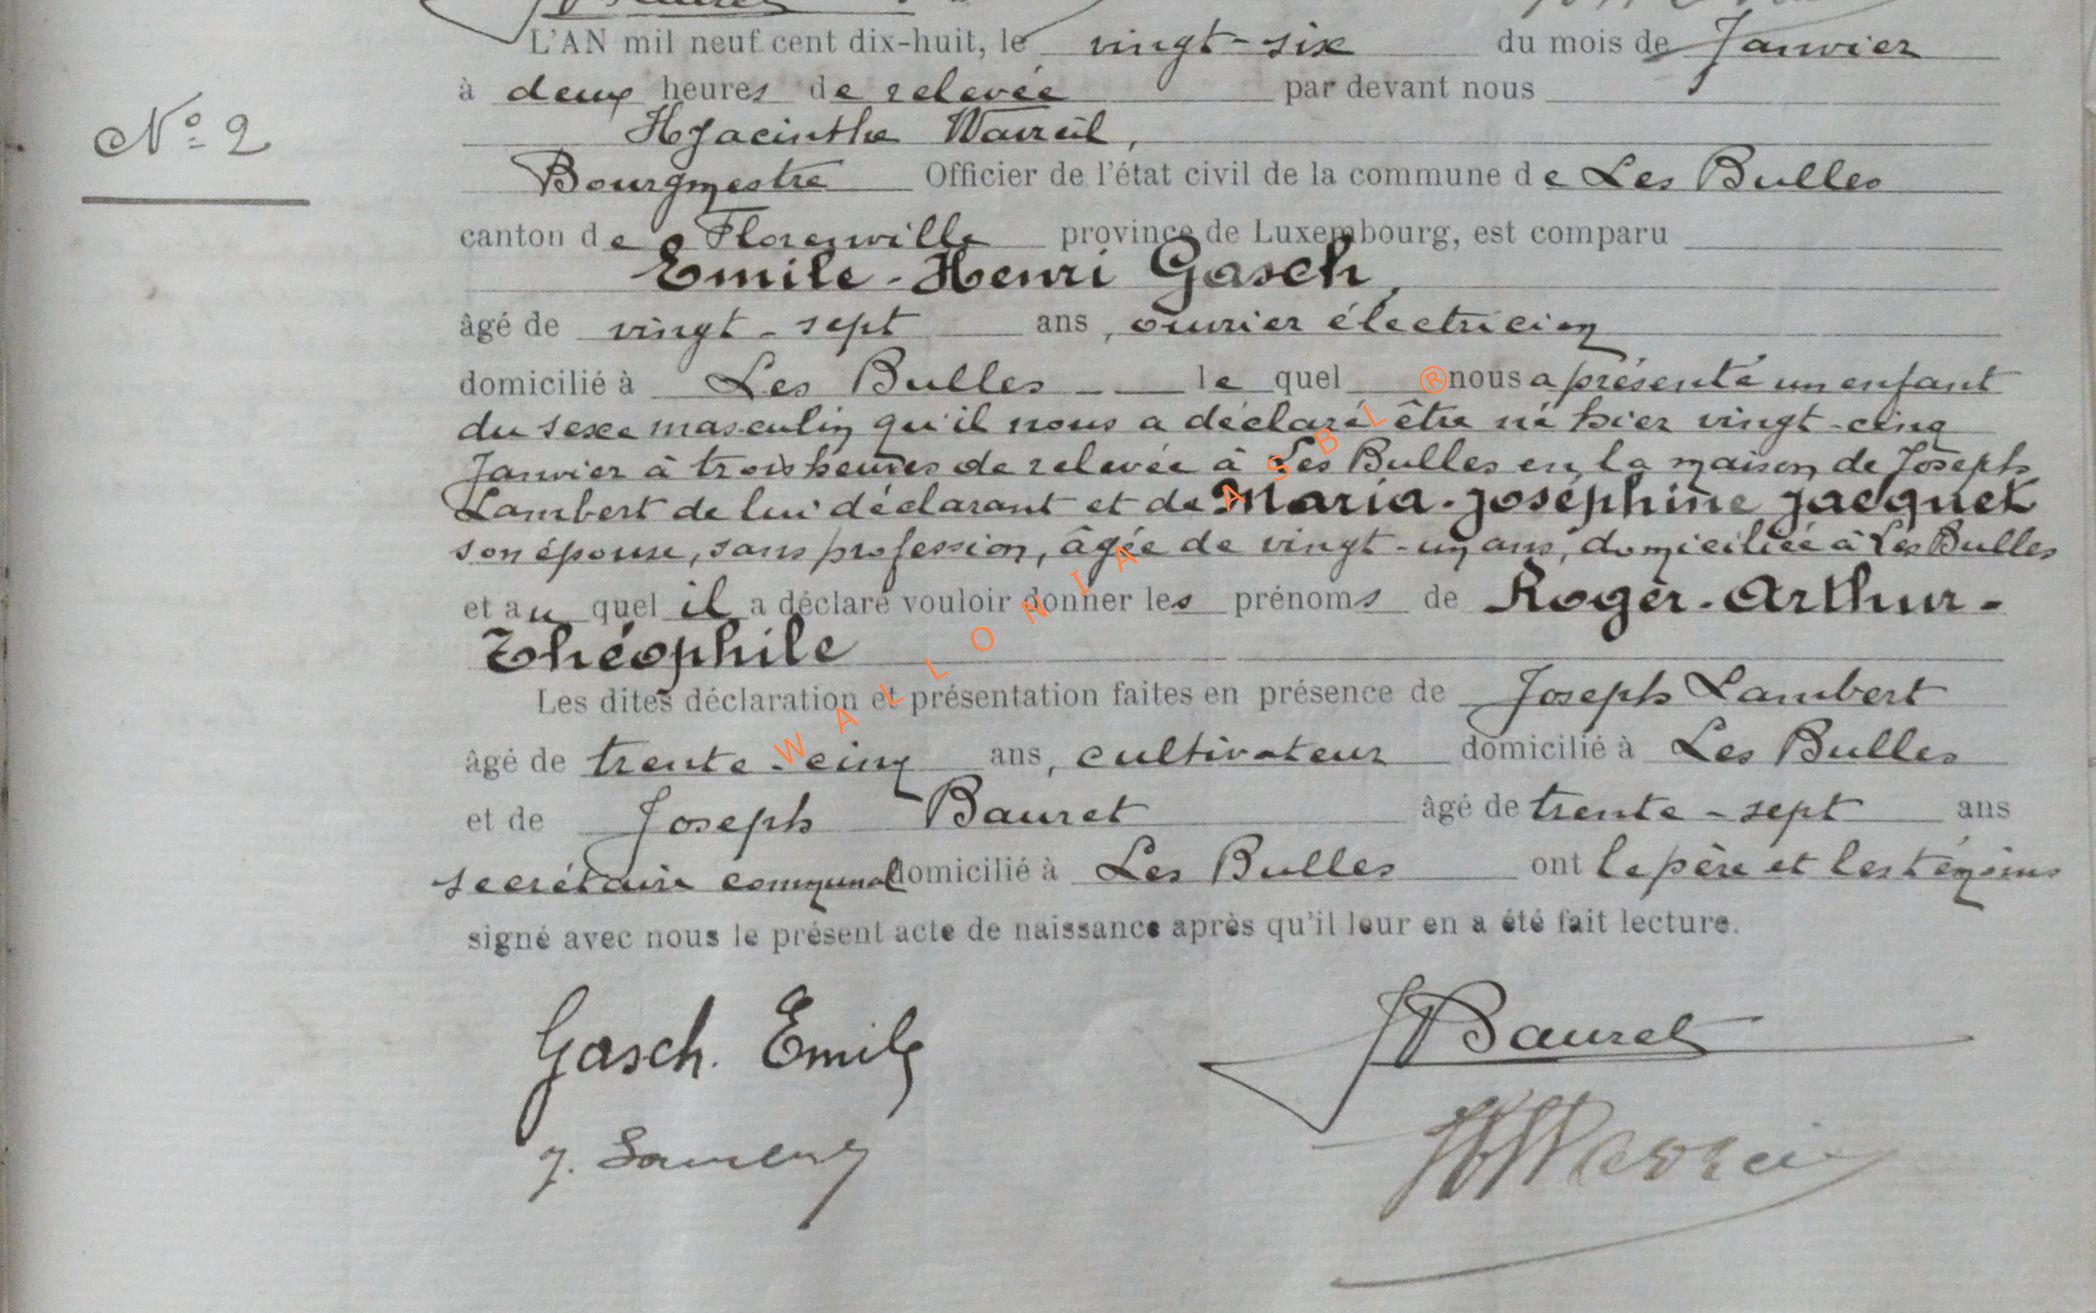 L'AN mil neuf cent dix-huit, le vingt-six du mois de Janvier
à deux heures de relevée par devant nous
N° 2
Hyacinthe Wavreil,
Bourgmestre Officier de l'état civil de la commune de Les Bulles
canton de Florenville province de Luxembourg, est comparu
Emile-Henri Gasch,
âgé de vingt-sept ans, ouvrier électricien
domicilié à Les Bulles le quel nous a présenté un enfant
du sexe masculin qu'il nous a déclaré être né hier vingt-cinq
Janvier à trois heures de relevée à Les Bulles en la maison de Joseph
Lambert de lui déclarant et de Maria-Joséphine Jacquet
son épouse, sans profession, âgée de vingt-un ans, domiciliée à Les Bulles
et au quel il a déclaré vouloir donner les prénoms de Roger-Arthur-
Théophile
Les dites déclaration et présentation faites en présence de Joseph Lambert
âgé de trente-cinq ans, cultivateur domicilié à Les Bulles
et de Joseph Bauret âgé de trente-sept ans
secrétaire communal domicilié à Les Bulles ont le père et les témoins
signé avec nous le présent acte de naissance après qu'il leur en a été fait lecture.
Gasch. Emile
J Bauret
J.
WALLONIA ASBL ®